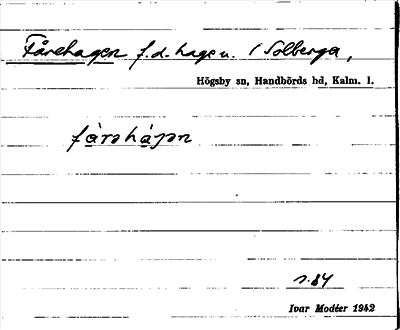 Fårehagen f.d. hage u. (Solberga,
Högsby sn, Handbörds hd, Kalm. l.
s. 84
Ivar Modéer 1942